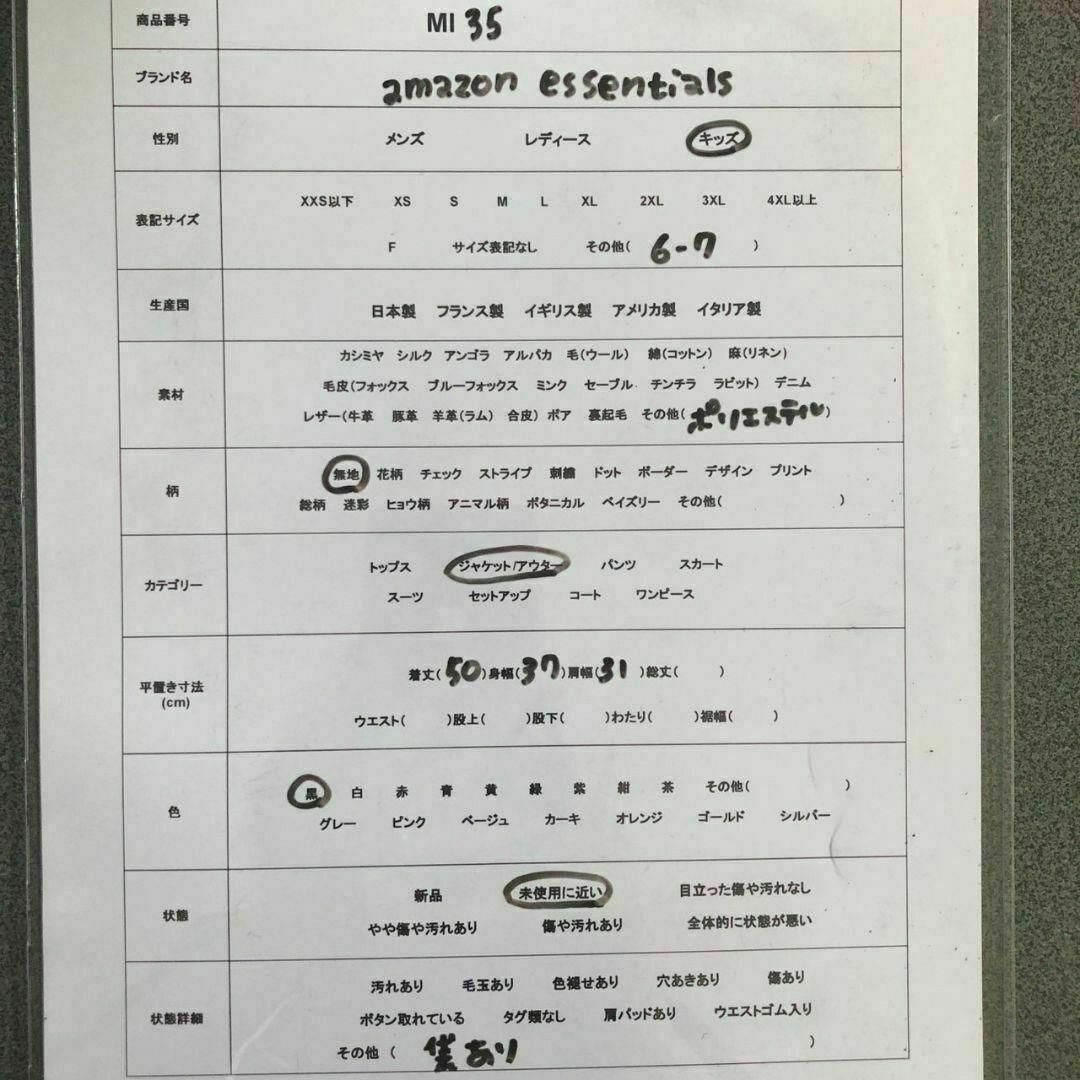 商品番号 MI 35
ブランド名 amazon essentials
性別 メンズ レディース キッズ
XXS以下 XS S M L XL 2XL 3XL 4XL以上
表記サイズ
F サイズ表記なし その他( 6-7 )
生産国 日本製 フランス製 イギリス製 アメリカ製 イタリア製
カシミヤ シルク アンゴラ アルパカ 毛(ウール) 綿(コットン) 麻(リネン)
素材 毛皮(フォックス ブルーフォックス ミンク セーブル チンチラ ラビット) デニム
レザー(牛革 豚革 羊革(ラム) 合皮) ボア 裏起毛 その他(ポリエステル)
無地 花柄 チェック ストライプ 刺繍 ドット ボーダー デザイン プリント
柄
総柄 迷彩 ヒョウ柄 アニマル柄 ボタニカル ペイズリー その他( )
トップス ジャケット/アウター パンツ スカート
カテゴリー
スーツ セットアップ コート ワンピース
着丈(50)身幅(37)肩幅(31)総丈( )
平置き寸法
(cm)
ウエスト( )股上( )股下( )わたり( )裾幅( )
黒 白 赤 青 黄 緑 紫 紺 茶 その他( )
色
グレー ピンク ベージュ カーキ オレンジ ゴールド シルバー
新品 未使用に近い 目立った傷や汚れなし
状態
やや傷や汚れあり 傷や汚れあり 全体的に状態が悪い
汚れあり 毛玉あり 色褪せあり 穴あきあり 傷あり
状態詳細 ボタン取れている タグ類なし 肩パッドあり ウエストゴム入り
その他 ( あり )